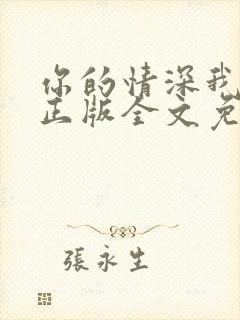 你的情深我
正版全文免
張永生